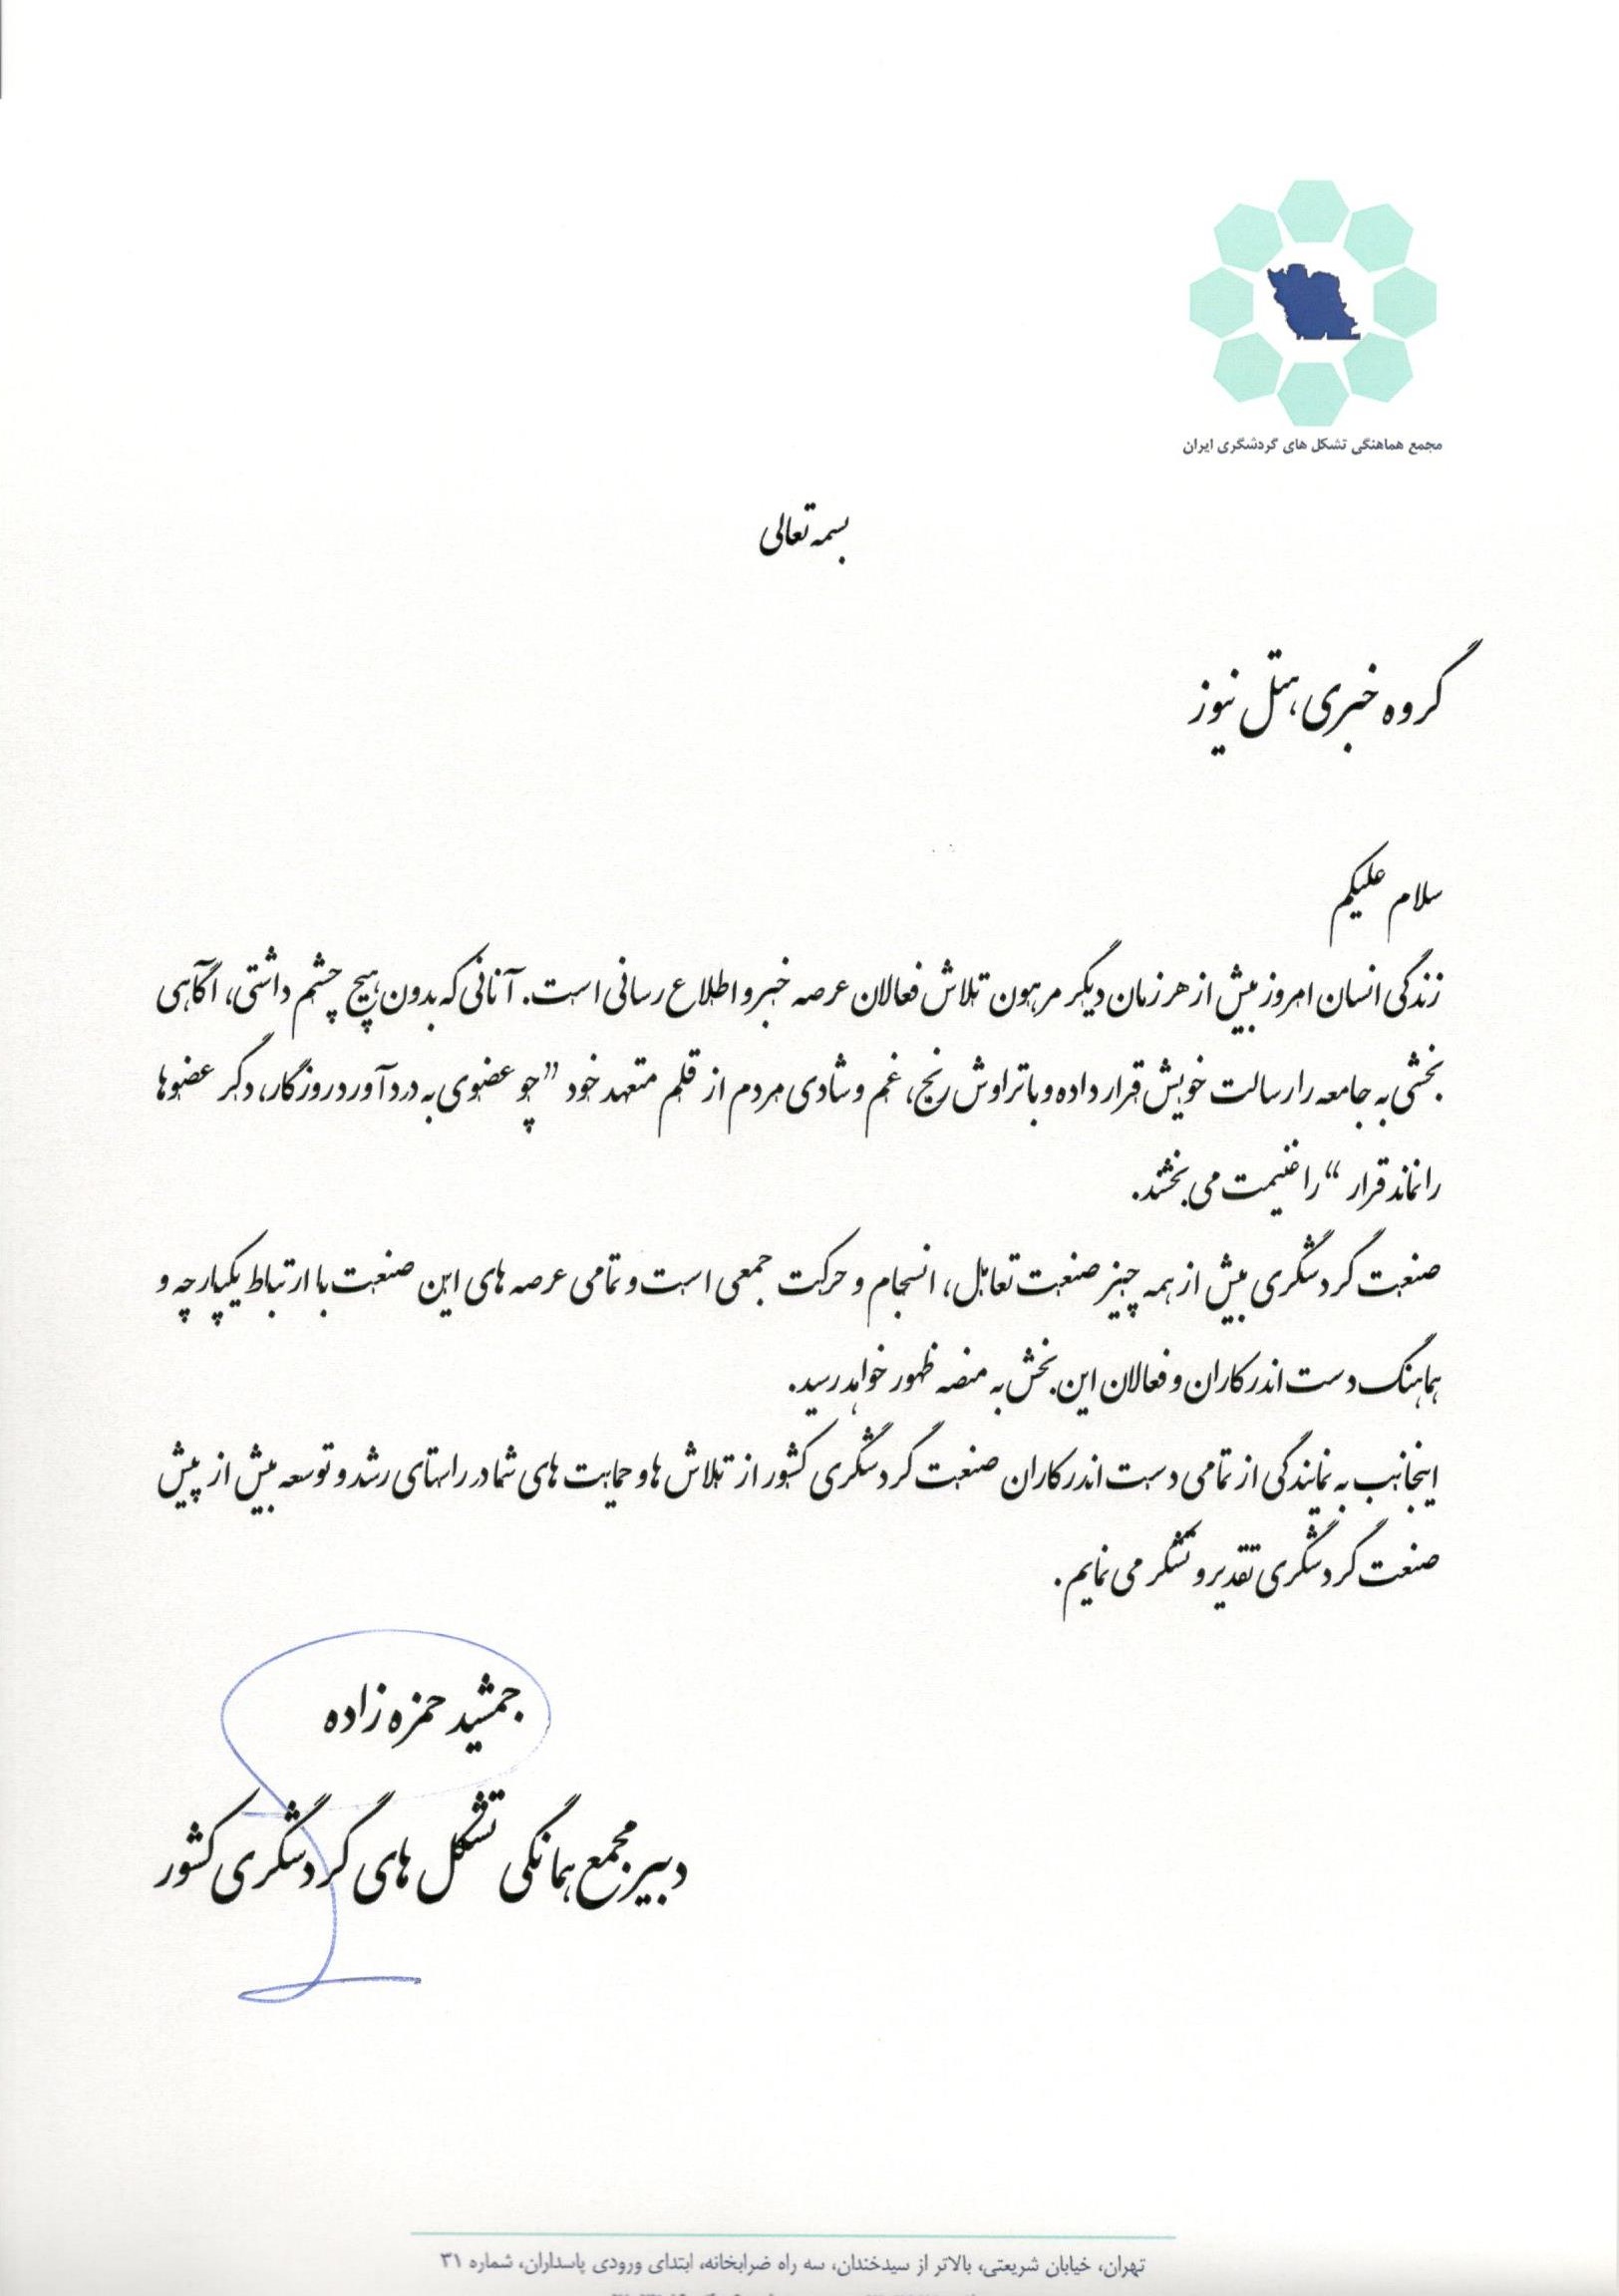 مجمع هماهنگی تشکل های گردشگری ایران
بسمه تعالی
گروه خبری هتل نیوز
سلام علیکم
زندگی انسان امروز بیش از هر زمان دیگر مرهون تلاش فعالان عرصه خبر و اطلاع رسانی است. آنانی که بدون هیچ چشم داشتی، آگاهی
بخشی به جامعه را رسالت خویش قرار داده و با تراوش رنج، غم و شادی مردم از قلم متعهد خود "چو عضوی به درد آورد روزگار، دگر عضوها
را نماند قرار" را غنیمت می بخشند.
صنعت گردشگری بیش از همه چیز صنعت تعامل، انسجام و حرکت جمعی است و تمامی عرصه های این صنعت با ارتباط یکپارچه و
هماهنگ دست اندرکاران و فعالان این بخش به منصه ظهور خواهد رسید.
اینجانب به نمایندگی از تمامی دست اندرکاران صنعت گردشگری کشور از تلاش ها و حمایت های شما در راستای رشد و توسعه بیش از پیش
صنعت گردشگری تقدیر و تشکر می نمایم.
جمشید حمزه زاده
دبیر مجمع هماهنگی تشکل های گردشگری کشور
تهران، خیابان شریعتی، بالاتر از سیدخندان، سه راه ضرابخانه، ابتدای ورودی پاسداران، شماره ۳۱